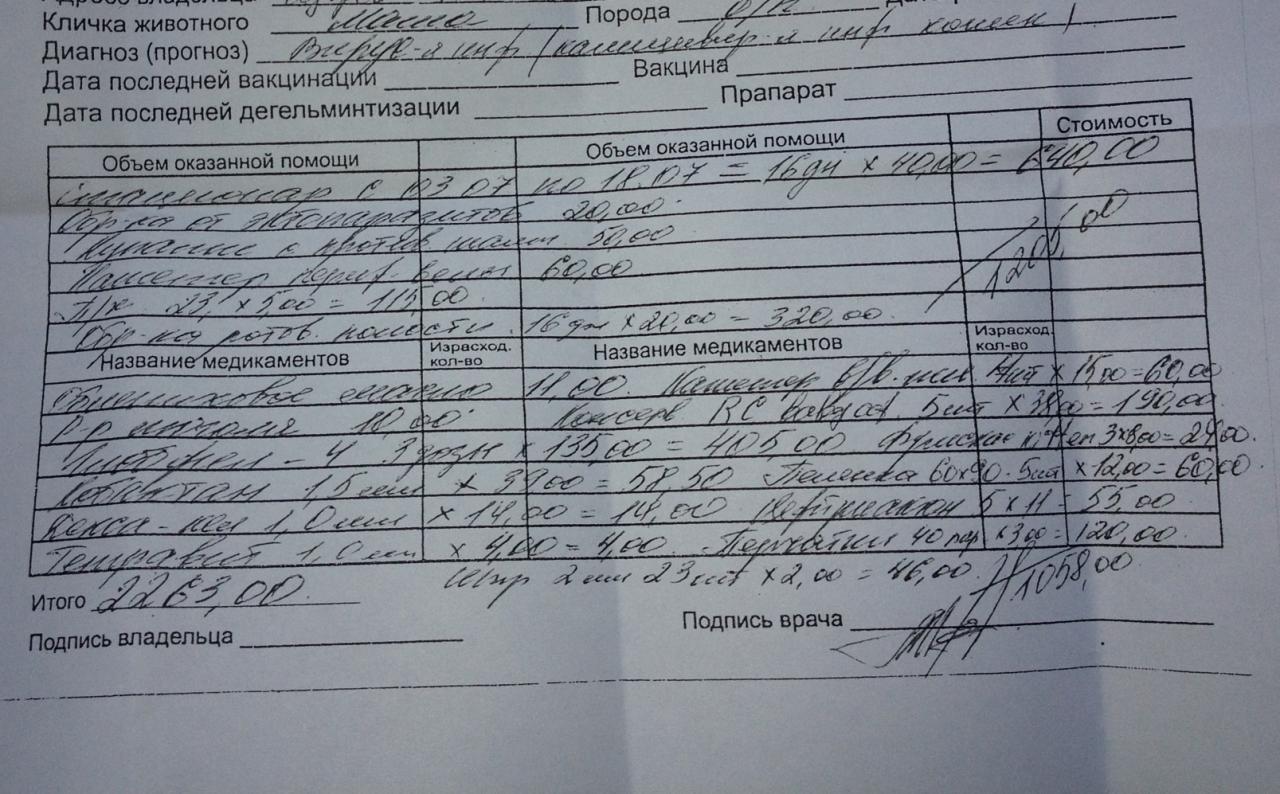 Кличка животного Маша Порода б/п
Диагноз (прогноз) Вирус-я инф (калицивир-я инф кошек)
Дата последней вакцинации Вакцина
Дата последней дегельминтизации Прапарат
Объем оказанной помощи Объем оказанной помощи Стоимость
стационар с 03.07 по 18.07 = 16 дн х 40,00 = 640,00
Обр-ка от эктопаразитов 20,00
Купание с против. 50,00
Катетер периф. вены 60,00 1205,00
П/к 23 х 5,00 = 115,00
Обр-ка ротов. полости 16 дн х 20,00 = 320,00
Название медикаментов Израсход. кол-во Название медикаментов Израсход. кол-во
Облепиховое масло 11,00 Катетер в/в 4шт х 15,00 = 60,00
Р-р 10,00 Консерв RC 5шт х 38,00 = 190,00
- 4 3 дозы х 135,00 = 405,00 3х8,00 = 24,00
1,5 мл х 39,00 = 58,50 Пеленка 60х90 - 5шт х 12,00 = 60,00
Декса-кел 1,0 мл х 14,00 = 14,00 Цефтриаксон 5 х 11 = 55,00
Тетравит 1,0 мл х 4,00 = 4,00 Перчатки 40 пар х 3,00 = 120,00
Шпр 2 мл 23 шт х 2,00 = 46,00 1058,00
Итого 2263,00
Подпись владельца Подпись врача